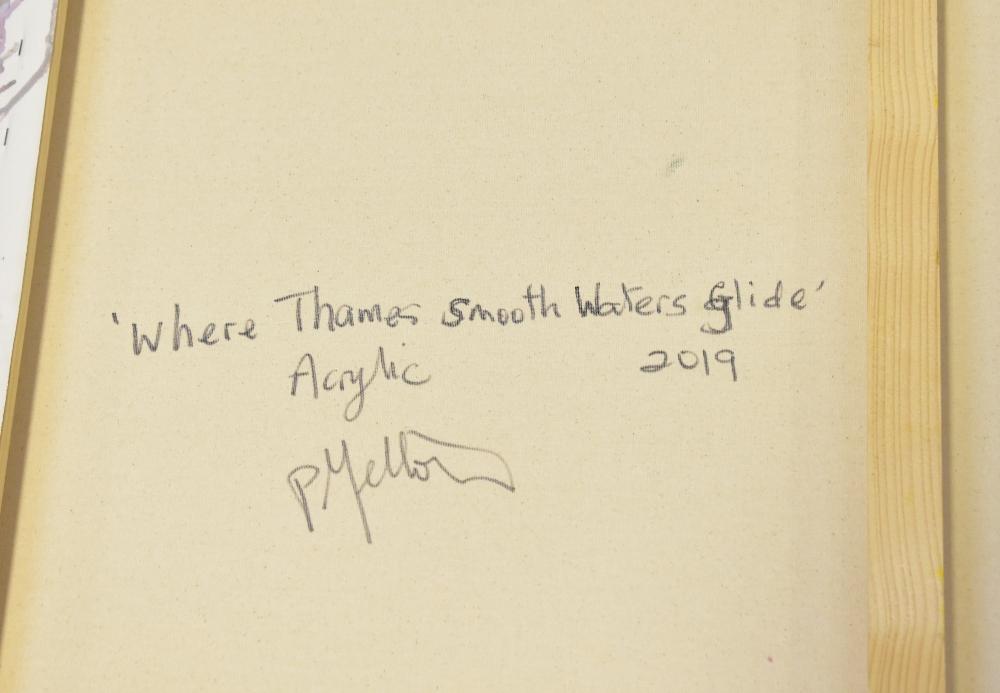 'Where Thames Smooth Waters Glide'
Acrylic 2019